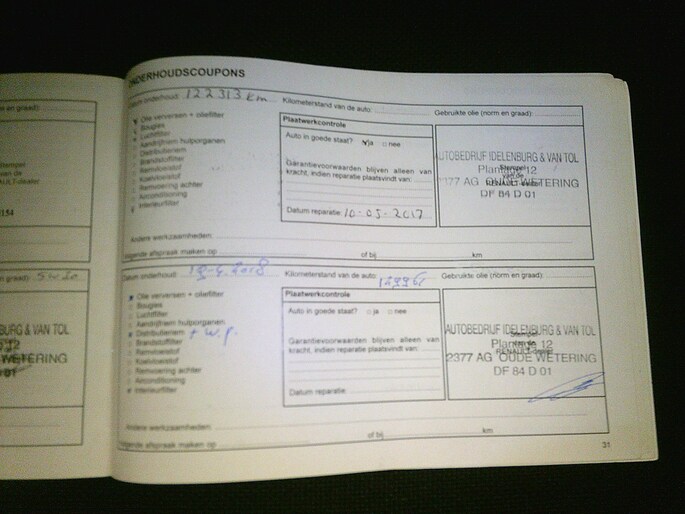 m en graad):
ONDERHOUDSCOUPONS
Datum onderhoud: 122313 km Kilometerstand van de auto: Gebruikte olie (norm en graad):
Olie verversen + oliefilter
Bougies
Luchtfilter
Aandrijfriem hulporganen
Distributieriem
Brandstoffilter
Remvloeistof
Koelvloeistof
Remvoering achter
Airconditioning
Interieurfilter
Plaatwerkcontrole
Auto in goede staat? ja nee
Garantievoorwaarden blijven alleen van
kracht, indien reparatie plaatsvindt van:
Datum reparatie: 10-05-2017
AUTOBEDRIJF IDELENBURG & VAN TOL
Plantage 12
2377 AG OUDE WETERING
DF 84 D 01
Stempel
van de
RENAULT-dealer
Andere werkzaamheden:
Volgende afspraak maken op of bij km
Stempel
van de
RENAULT-dealer
en graad): 5w30
Datum onderhoud: Kilometerstand van de auto: Gebruikte olie (norm en graad):
Olie verversen + oliefilter
Bougies
Luchtfilter
Aandrijfriem hulporganen
Distributieriem + w.p.
Brandstoffilter
Remvloeistof
Koelvloeistof
Remvoering achter
Airconditioning
Interieurfilter
Plaatwerkcontrole
Auto in goede staat? ja nee
Garantievoorwaarden blijven alleen van
kracht, indien reparatie plaatsvindt van:
Datum reparatie:
AUTOBEDRIJF IDELENBURG & VAN TOL
Plantage 12
2377 AG OUDE WETERING
DF 84 D 01
Stempel
van de
RENAULT-dealer
BURG & VAN TOL
WETERING
Andere werkzaamheden:
Volgende afspraak maken op of bij km
31